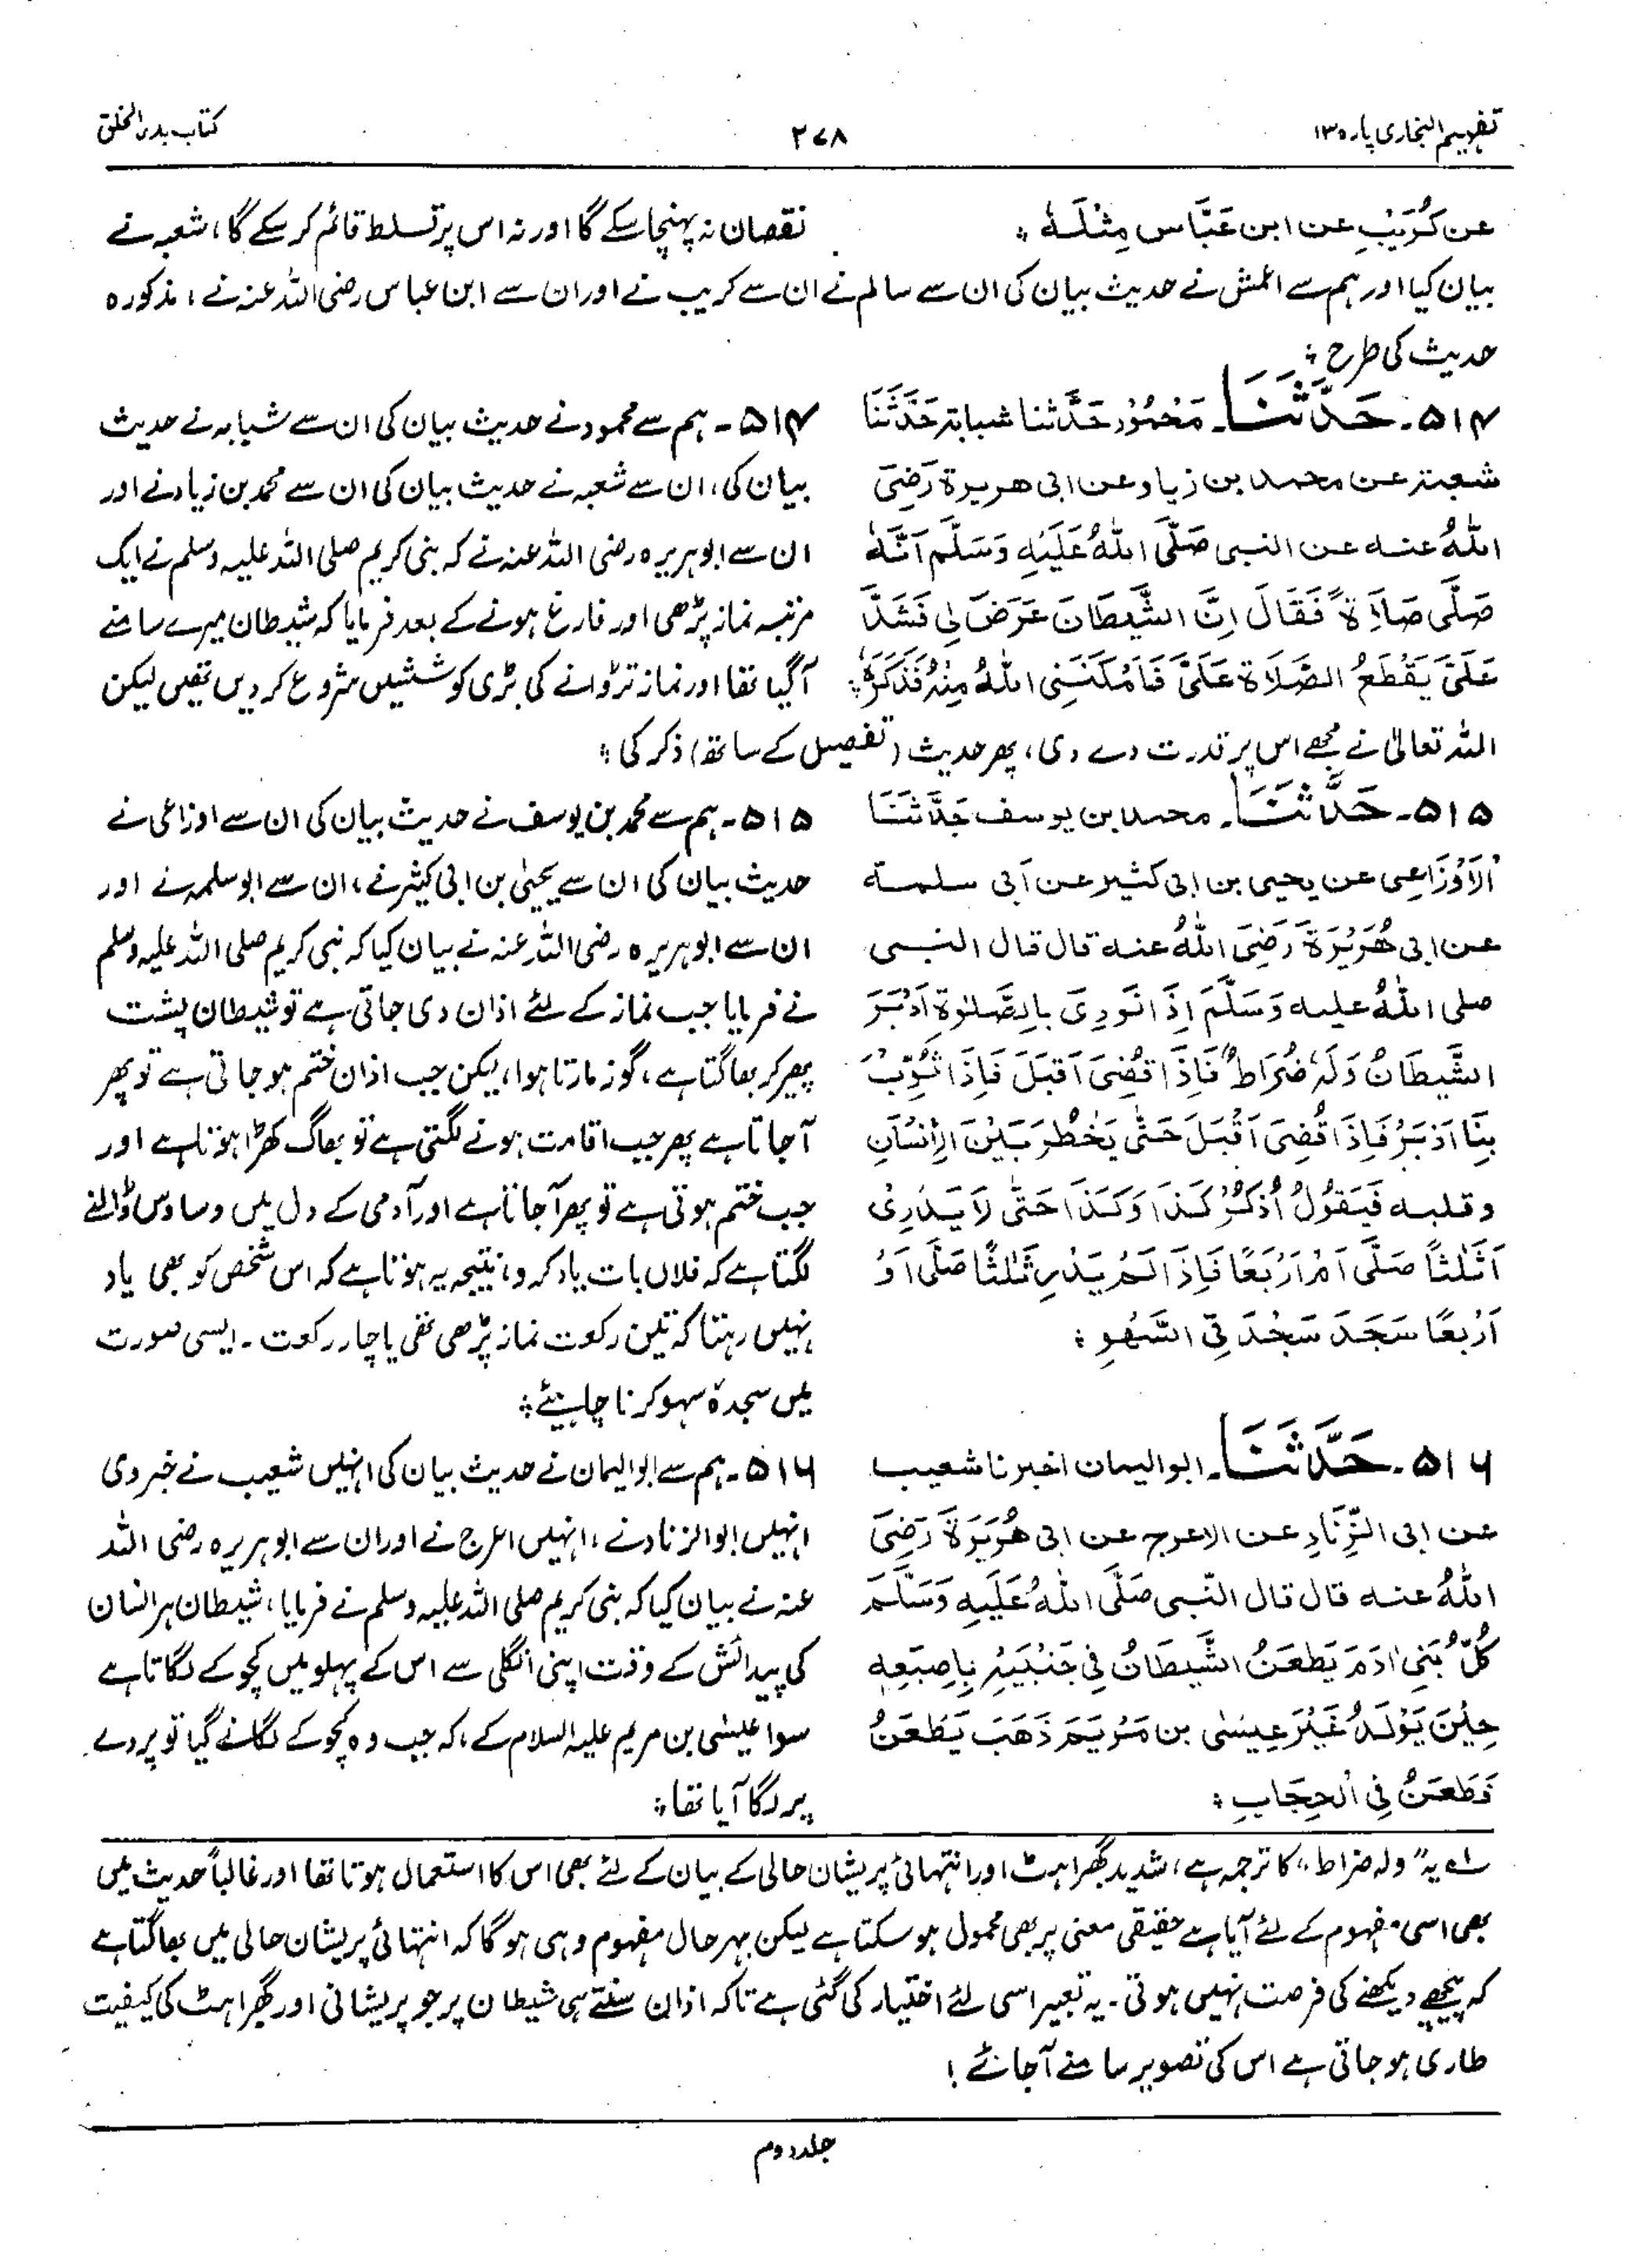 تفہیم البخاری پارہ ۱۳
۲۷۸
کتاب بدء الخلق
عن كُرَيْبٍ عن ابن عَبَّاس مِثْلَهٗ ؛
نقصان نہ پہنچا سکے گا اور نہ اس پر تسلط قائم کر سکے گا، شعبہ نے
بیان کیا اور ہم سے اعمش نے حدیث بیان کی ان سے سالم نے ان سے کریب نے اور ان سے ابن عباس رضی اللہ عنہ نے ، مذکورہ
حدیث کی طرح ؛
۵۱۴۔ حَدَّثَنَا۔ مَحْمُوْد حَدَّثنا شبابة حَدَّثَنَا
شعبة عن محمد بن زياد عن ابى هريرة رَضِىَ
اللهُ عنه عن النبى صَلَّى اللهُ عَلَيْهِ وَسَلَّم اَنَّهٗ
صَلَّى صَلَاةً فَقَالَ اِنَّ الشَّيْطَانَ عَرَضَ لِى فَشَدَّ
عَلَىَّ يَقْطَعُ الصَّلَاةَ عَلَىَّ فَاَمْكَنَنِى اللهُ مِنْهُ فَذَكَرَهٗ ؛
۵۱۴۔ ہم سے محمود نے حدیث بیان کی ان سے شبابہ نے حدیث
بیان کی، ان سے شعبہ نے حدیث بیان کی ان سے محمد بن زیاد نے اور
ان سے ابوہریرہ رضی اللہ عنہ نے کہ نبی کریم صلی اللہ علیہ وسلم نے ایک
مرتبہ نماز پڑھی اور فارغ ہونے کے بعد فرمایا کہ شیطان میرے سامنے
آگیا تھا اور نماز تڑوانے کی بڑی کوششیں شروع کر دیں تھیں لیکن
اللہ تعالیٰ نے مجھے اس پر قدرت دے دی، پھر حدیث (تفصیل کے ساتھ) ذکر کی ؛
۵۱۵۔ حَدَّثَنَا۔ محمد بن يوسف حَدَّثَنَا
اَلْاَوْزَاعِى عن يحيى بن ابى كثير عن اَبى سلمة
عن ابى هُرَيْرَةَ رَضِىَ اللهُ عنه قال قال النبى
صلى اللهُ عليه وَسَلَّمَ اِذَا نُوْدِىَ بِالصَّلٰوةِ اَدْبَرَ
الشَّيْطَانُ وَلَهٗ ضُرَاطٌ فَاِذَا قُضِىَ اَقْبَلَ فَاِذَا ثُوِّبَ
بِهَا اَدْبَرَ فَاِذَا قُضِىَ اَقْبَلَ حَتّٰى يَخْطُرَ بَيْنَ الْاِنْسَانِ
وقلبه فَيَقُوْلُ اُذْكُرْ كَذَا وَكَذَا حَتّٰى لَا يَدْرِىْ
اَثَلٰثًا صَلَّى اَمْ اَرْبَعًا فَاِذَا لَمْ يَدْرِ ثَلٰثًا صَلّٰى اَوْ
اَرْبَعًا سَجَدَ سَجْدَتَى السَّهْوِ ؛
۵۱۵۔ ہم سے محمد بن یوسف نے حدیث بیان کی ان سے اوزاعی نے
حدیث بیان کی ان سے یحییٰ بن ابی کثیر نے، ان سے ابوسلمہ نے اور
ان سے ابوہریرہ رضی اللہ عنہ نے بیان کیا کہ نبی کریم صلی اللہ علیہ وسلم
نے فرمایا جب نماز کے لئے اذان دی جاتی ہے تو شیطان پشت
پھیر کر بھاگتا ہے، گوز مارتا ہوا، لیکن جب اذان ختم ہو جاتی ہے تو پھر
آ جاتا ہے پھر جب اقامت ہونے لگتی ہے تو بھاگ کھڑا ہوتا ہے اور
جب ختم ہوتی ہے تو پھر آ جاتا ہے اور آدمی کے دل میں وساوس ڈالنے
لگتا ہے کہ فلاں بات یاد کرو، نتیجہ یہ ہوتا ہے کہ اس شخص کو بھی یاد
نہیں رہتا کہ تین رکعت نماز پڑھی تھی یا چار رکعت ۔ ایسی صورت
میں سجدۂ سہو کرنا چاہیئے ؛
۵۱۶۔ حَدَّثَنَا۔ ابو اليمان اخبرنا شعيب
عن ابى الزِّنَادِ عن الاعرج عن ابى هُرَيْرَةَ رَضِىَ
اللهُ عنه قال قال النّبى صَلَّى اللهُ عَلَيْهِ وَسَلَّمَ
كُلُّ بَنِى اٰدَمَ يَطْعَنُ الشَّيْطَانُ فِى جَنْبَيْهِ بِاِصْبَعِهٖ
حِيْنَ يُوْلَدُ غَيْرَ عِيْسٰى بن مَرْيَمَ ذَهَبَ يَطْعَنُ
فَطَعَنَ فِى الْحِجَابِ ؛
۵۱۶۔ ہم سے ابوالیمان نے حدیث بیان کی انہیں شعیب نے خبر دی
انہیں ابوالزناد نے، انہیں اعرج نے اور ان سے ابوہریرہ رضی اللہ
عنہ نے بیان کیا کہ نبی کریم صلی اللہ علیہ وسلم نے فرمایا، شیطان ہر انسان
کی پیدائش کے وقت اپنی انگلی سے اس کے پہلو میں کچوکے لگاتا ہے
سوا عیسیٰ بن مریم علیہ السلام کے، کہ جب وہ کچوکے لگانے گیا تو پردے
پر لگا آیا تھا ؛
لہ یہ "ولہ ضراط" کا ترجمہ ہے، شدید گھبراہٹ اور انتہائی پریشان حالی کے بیان کے لئے بھی اس کا استعمال ہوتا تھا اور غالباً حدیث میں
بھی اسی مفہوم کے لئے آیا ہے حقیقی معنی پر بھی محمول ہو سکتا ہے لیکن بہرحال مفہوم وہی ہوگا کہ انتہائی پریشان حالی میں بھاگتا ہے
کہ پیچھے دیکھنے کی فرصت نہیں ہوتی ۔ یہ تعبیر اسی لئے اختیار کی گئی ہے تاکہ اذان سنتے ہی شیطان پر جو پریشانی اور گھبراہٹ کی کیفیت
طاری ہو جاتی ہے اس کی تصویر سامنے آجائے !
جلد دوم